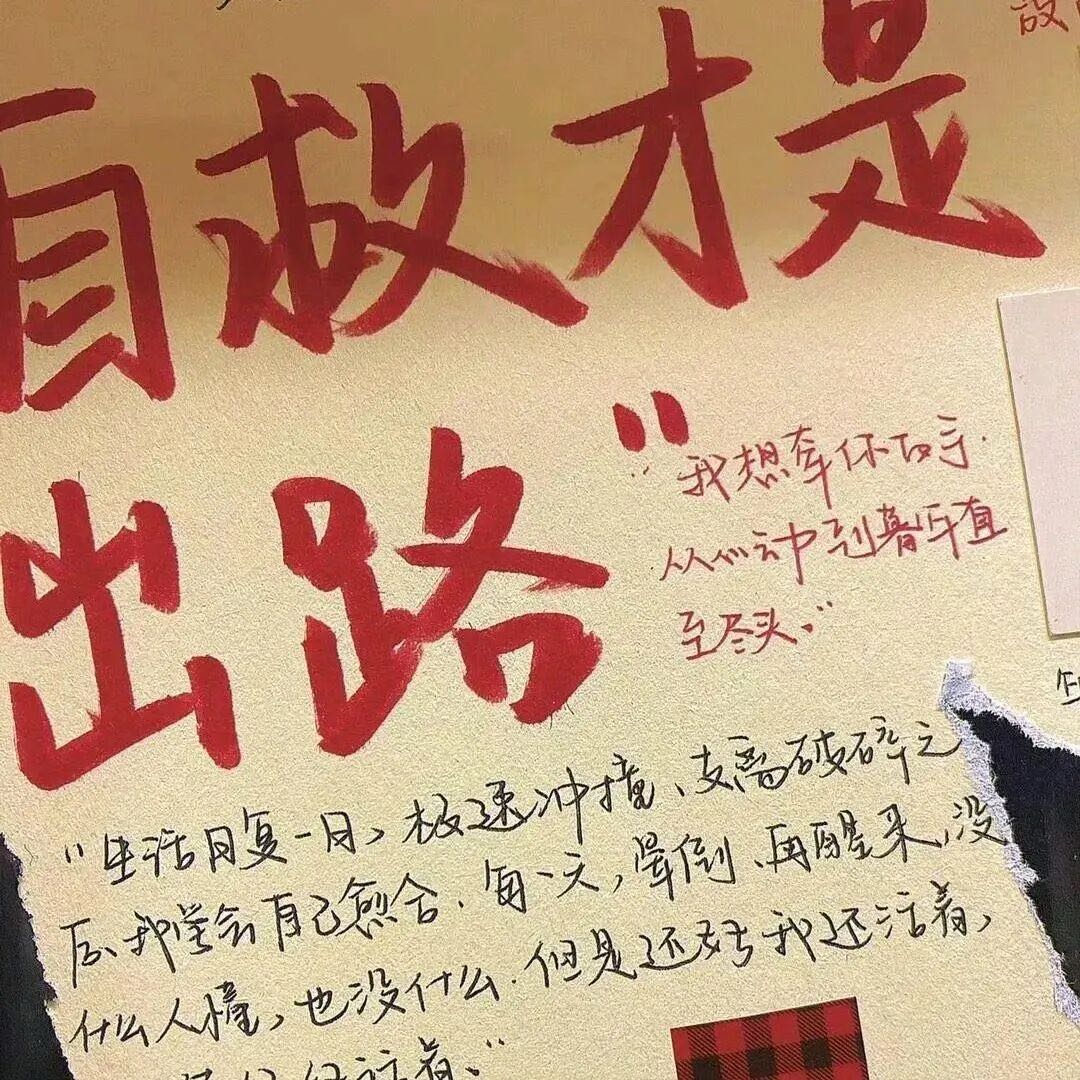 自救才是
出路
“我想牵你的手.
从心动到暮年直
至尽头。”
“生活日复一日，极速冲撞、支离破碎之
后、我学会自己愈合. 每一天，晕倒、再醒来，没
什么人懂，也没什么. 但是还好我还活着，
活着.”